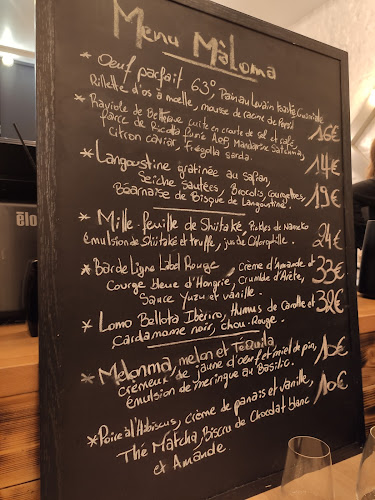 Menu Màloma
* Oeuf parfait 63° Pain au Levain toasté
Rillette d'os à moelle, mousse de racine de Persil 16€
* Raviole de Betterave cuite en croute de sel et café
farce de Ricotta fumé Mandarine Satsuma,
Citron caviar, Fregolla sarda. 14€
* Langoustine gratinée au safran,
Seiche sautées, Brocolis Courgettes,
Béarnaise de Bisque de Langoustine. 19€
* Mille-feuille de Shiitaké Pickles de Nameko
émulsion de Shiitaké et truffe, jus de Chlorophille. 24€
* Bar de Ligne Label Rouge, crème d'Amande et
Courge bleue d'Hongrie, Crumble d'Arête, 33€
Sauce Yuzu et Vanille.
* Lomo Bellota Ibérico, Humus de Carotte et 32€
Cardamome noir, chou-Rouge.
* Malonma, melon et Téquila
crémeux de jaune d'oeuf et miel de pin, 10€
émulsion de meringue au Basilic.
* Poire à l'Hibiscus, crème de panais et vanille, 10€
Thé Matcha, Biscru de Chocolat blanc
et Amande.
élo